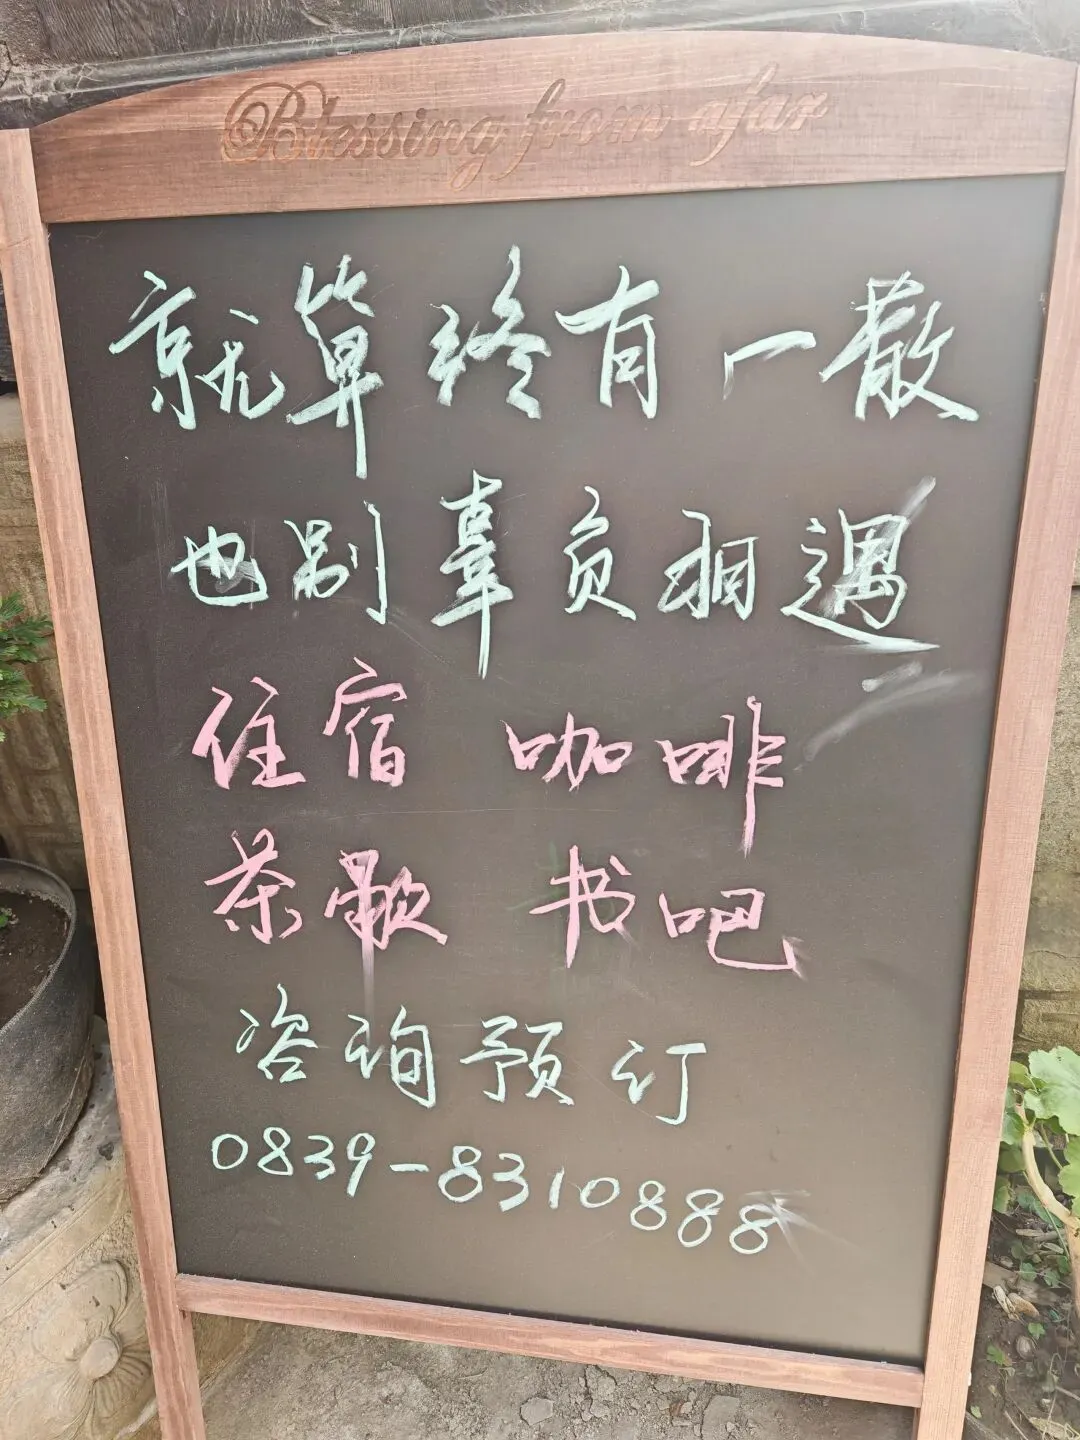 Blessing from afar
就算终有一散
也别辜负相遇
住宿 咖啡
茶歇 书吧
咨询预订
0839-8310888